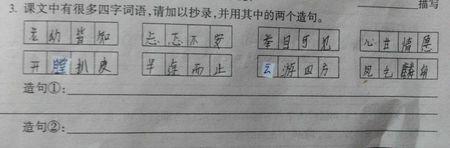 描写
3. 课文中有很多四字词语,请加以抄录,并用其中的两个造句。
老幼皆知 忐忑不安 举目可见 心甘情愿
开膛扒皮 半途而止 云游四方 凤毛麟角
造句①:
造句②: